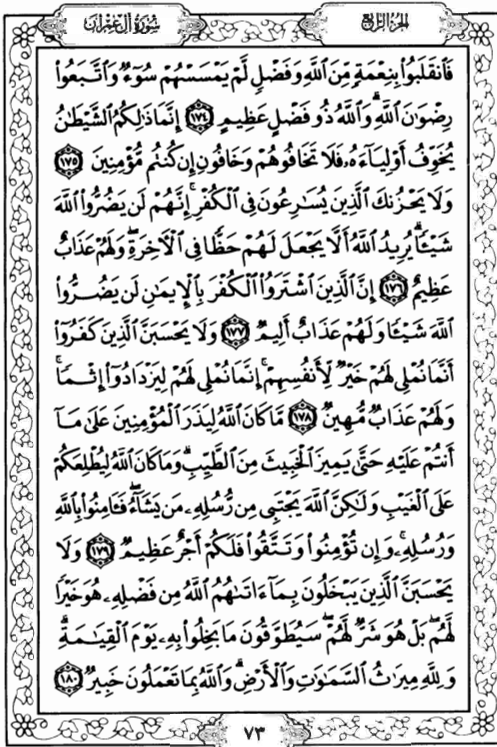 سُورَةُ آلِ عِمْرَان
الجزء الرابع
فَٱنقَلَبُوا۟ بِنِعْمَةٍ مِّنَ ٱللَّهِ وَفَضْلٍ لَّمْ يَمْسَسْهُمْ سُوٓءٌ وَٱتَّبَعُوا۟
رِضْوَٰنَ ٱللَّهِ ۗ وَٱللَّهُ ذُو فَضْلٍ عَظِيمٍ ١٧٤ إِنَّمَا ذَٰلِكُمُ ٱلشَّيْطَٰنُ
يُخَوِّفُ أَوْلِيَآءَهُۥ فَلَا تَخَافُوهُمْ وَخَافُونِ إِن كُنتُم مُّؤْمِنِينَ ١٧٥
وَلَا يَحْزُنكَ ٱلَّذِينَ يُسَٰرِعُونَ فِى ٱلْكُفْرِ ۚ إِنَّهُمْ لَن يَضُرُّوا۟ ٱللَّهَ
شَيْـًٔا ۗ يُرِيدُ ٱللَّهُ أَلَّا يَجْعَلَ لَهُمْ حَظًّا فِى ٱلْـَٔاخِرَةِ ۖ وَلَهُمْ عَذَابٌ
عَظِيمٌ ١٧٦ إِنَّ ٱلَّذِينَ ٱشْتَرَوُا۟ ٱلْكُفْرَ بِٱلْإِيمَٰنِ لَن يَضُرُّوا۟
ٱللَّهَ شَيْـًٔا وَلَهُمْ عَذَابٌ أَلِيمٌ ١٧٧ وَلَا يَحْسَبَنَّ ٱلَّذِينَ كَفَرُوٓا۟
أَنَّمَا نُمْلِى لَهُمْ خَيْرٌ لِّأَنفُسِهِمْ ۚ إِنَّمَا نُمْلِى لَهُمْ لِيَزْدَادُوٓا۟ إِثْمًا ۚ
وَلَهُمْ عَذَابٌ مُّهِينٌ ١٧٨ مَّا كَانَ ٱللَّهُ لِيَذَرَ ٱلْمُؤْمِنِينَ عَلَىٰ مَآ
أَنتُمْ عَلَيْهِ حَتَّىٰ يَمِيزَ ٱلْخَبِيثَ مِنَ ٱلطَّيِّبِ ۗ وَمَا كَانَ ٱللَّهُ لِيُطْلِعَكُمْ
عَلَى ٱلْغَيْبِ وَلَٰكِنَّ ٱللَّهَ يَجْتَبِى مِن رُّسُلِهِۦ مَن يَشَآءُ ۖ فَـَٔامِنُوا۟ بِٱللَّهِ
وَرُسُلِهِۦ ۚ وَإِن تُؤْمِنُوا۟ وَتَتَّقُوا۟ فَلَكُمْ أَجْرٌ عَظِيمٌ ١٧٩ وَلَا
يَحْسَبَنَّ ٱلَّذِينَ يَبْخَلُونَ بِمَآ ءَاتَىٰهُمُ ٱللَّهُ مِن فَضْلِهِۦ هُوَ خَيْرًا
لَّهُم ۖ بَلْ هُوَ شَرٌّ لَّهُمْ ۖ سَيُطَوَّقُونَ مَا بَخِلُوا۟ بِهِۦ يَوْمَ ٱلْقِيَٰمَةِ ۗ
وَلِلَّهِ مِيرَٰثُ ٱلسَّمَٰوَٰتِ وَٱلْأَرْضِ ۗ وَٱللَّهُ بِمَا تَعْمَلُونَ خَبِيرٌ ١٨٠
٧٣